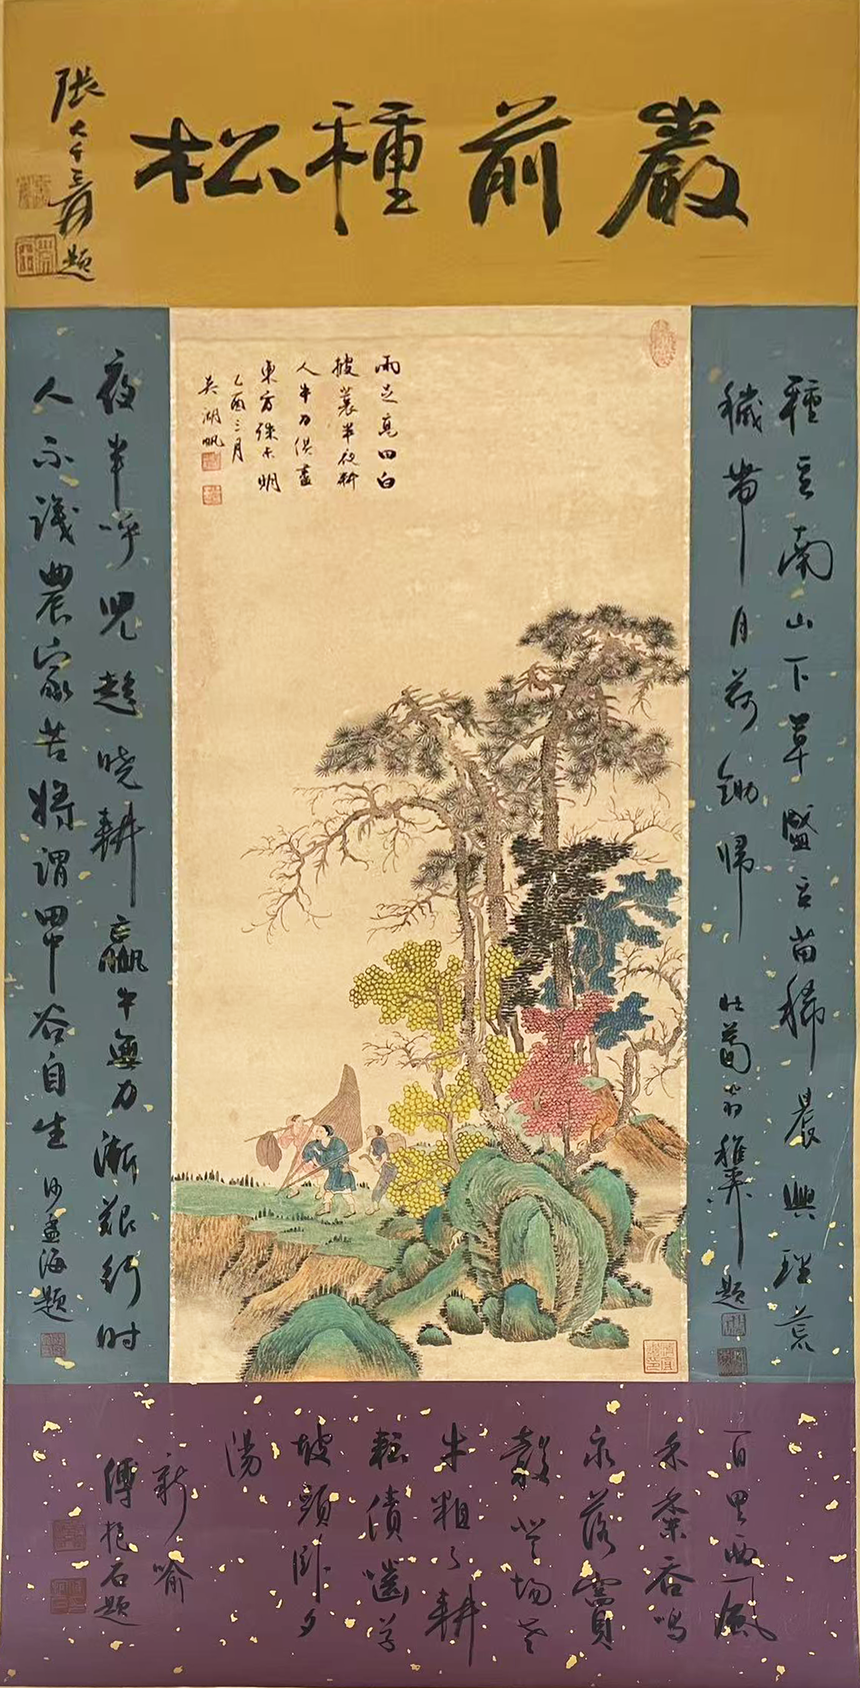 巖前種松
張大千爰題
雨足高田白
披蓑半夜耕
人牛力俱盡
東方殊未明
乙酉三月
吳湖帆
種豆南山下草盛豆苗稀晨興理荒
穢帶月荷鋤歸
壯暮翁稚柳題
夜半呼兒趁曉耕羸牛無力漸艱行時
人不識農家苦將謂田中谷自生
沙孟海題
百里西風
禾黍香鳴
泉落竇
穀登場老
牛粗了耕
耘債嚙草
坡頭臥夕
陽
新喻
傅抱石題